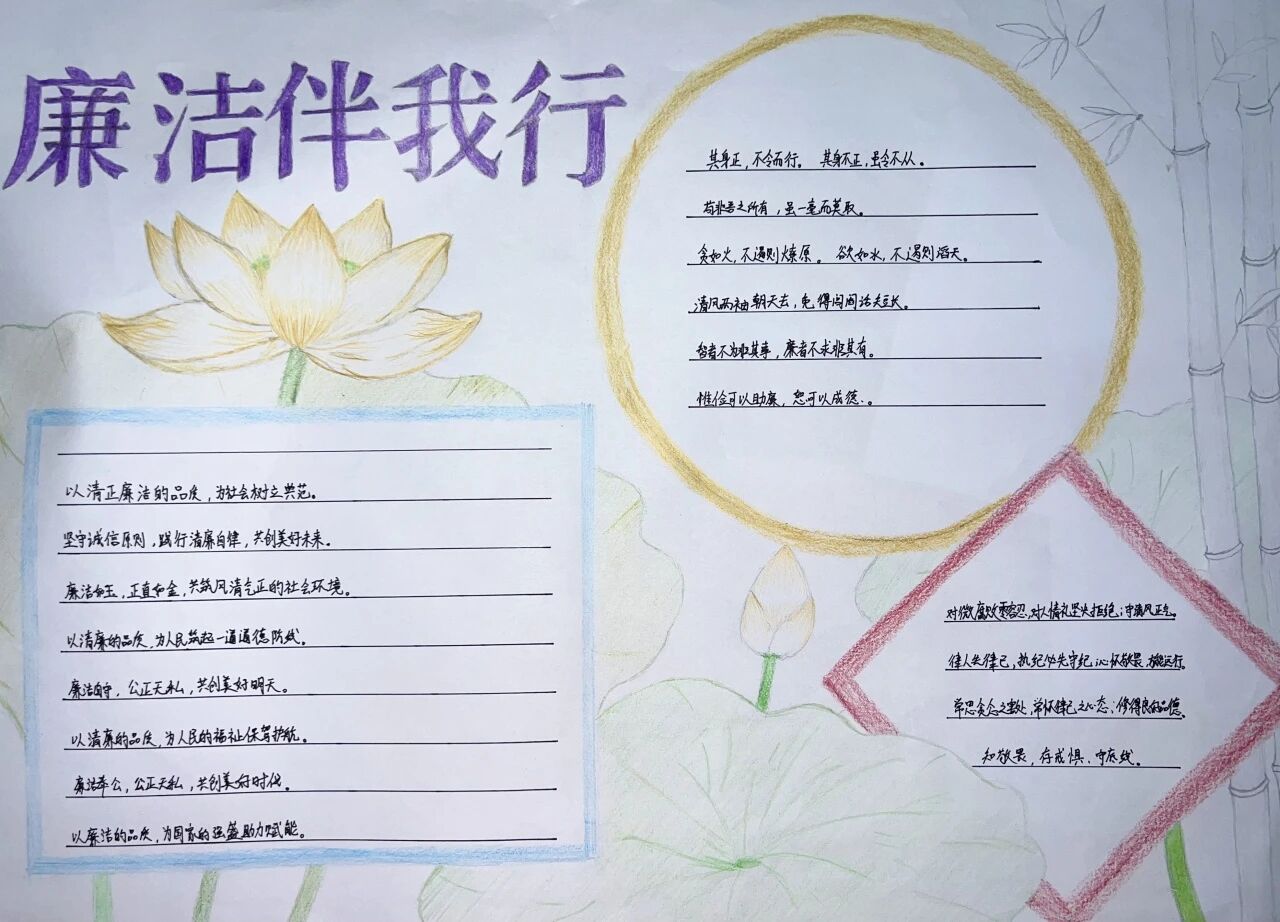 廉洁伴我行
其身正，不令而行。 其身不正，虽令不从。
苟非吾之所有，虽一毫而莫取。
贪如火，不遏则燎原。 欲如水，不遏则滔天。
清风两袖朝天去，免得闾阎话夫豆长。
智者不为非其事，廉者不求非其有。
惟俭可以助廉，恕可以成德.。
以清正廉洁的品质，为社会树立典范。
坚守诚信原则，践行清廉自律，共创美好未来。
廉洁如玉，正直如金，共筑风清气正的社会环境。
以清廉的品质，为人民筑起一道道德防线。
廉洁自守，公正无私，共创美好明天。
以清廉的品质，为人民的福祉保驾护航。
廉洁奉公，公正无私，共创美好时代。
以廉洁的品质，为国家的强盛助力赋能。
对微腐败零容忍，对人情礼坚决拒绝；守清风正气。
律人先律己，执纪必先守纪，心怀敬畏，
常思贪念之害处，常怀律己之心态；修得良好品德。
知敬畏，存戒惧、守底线。